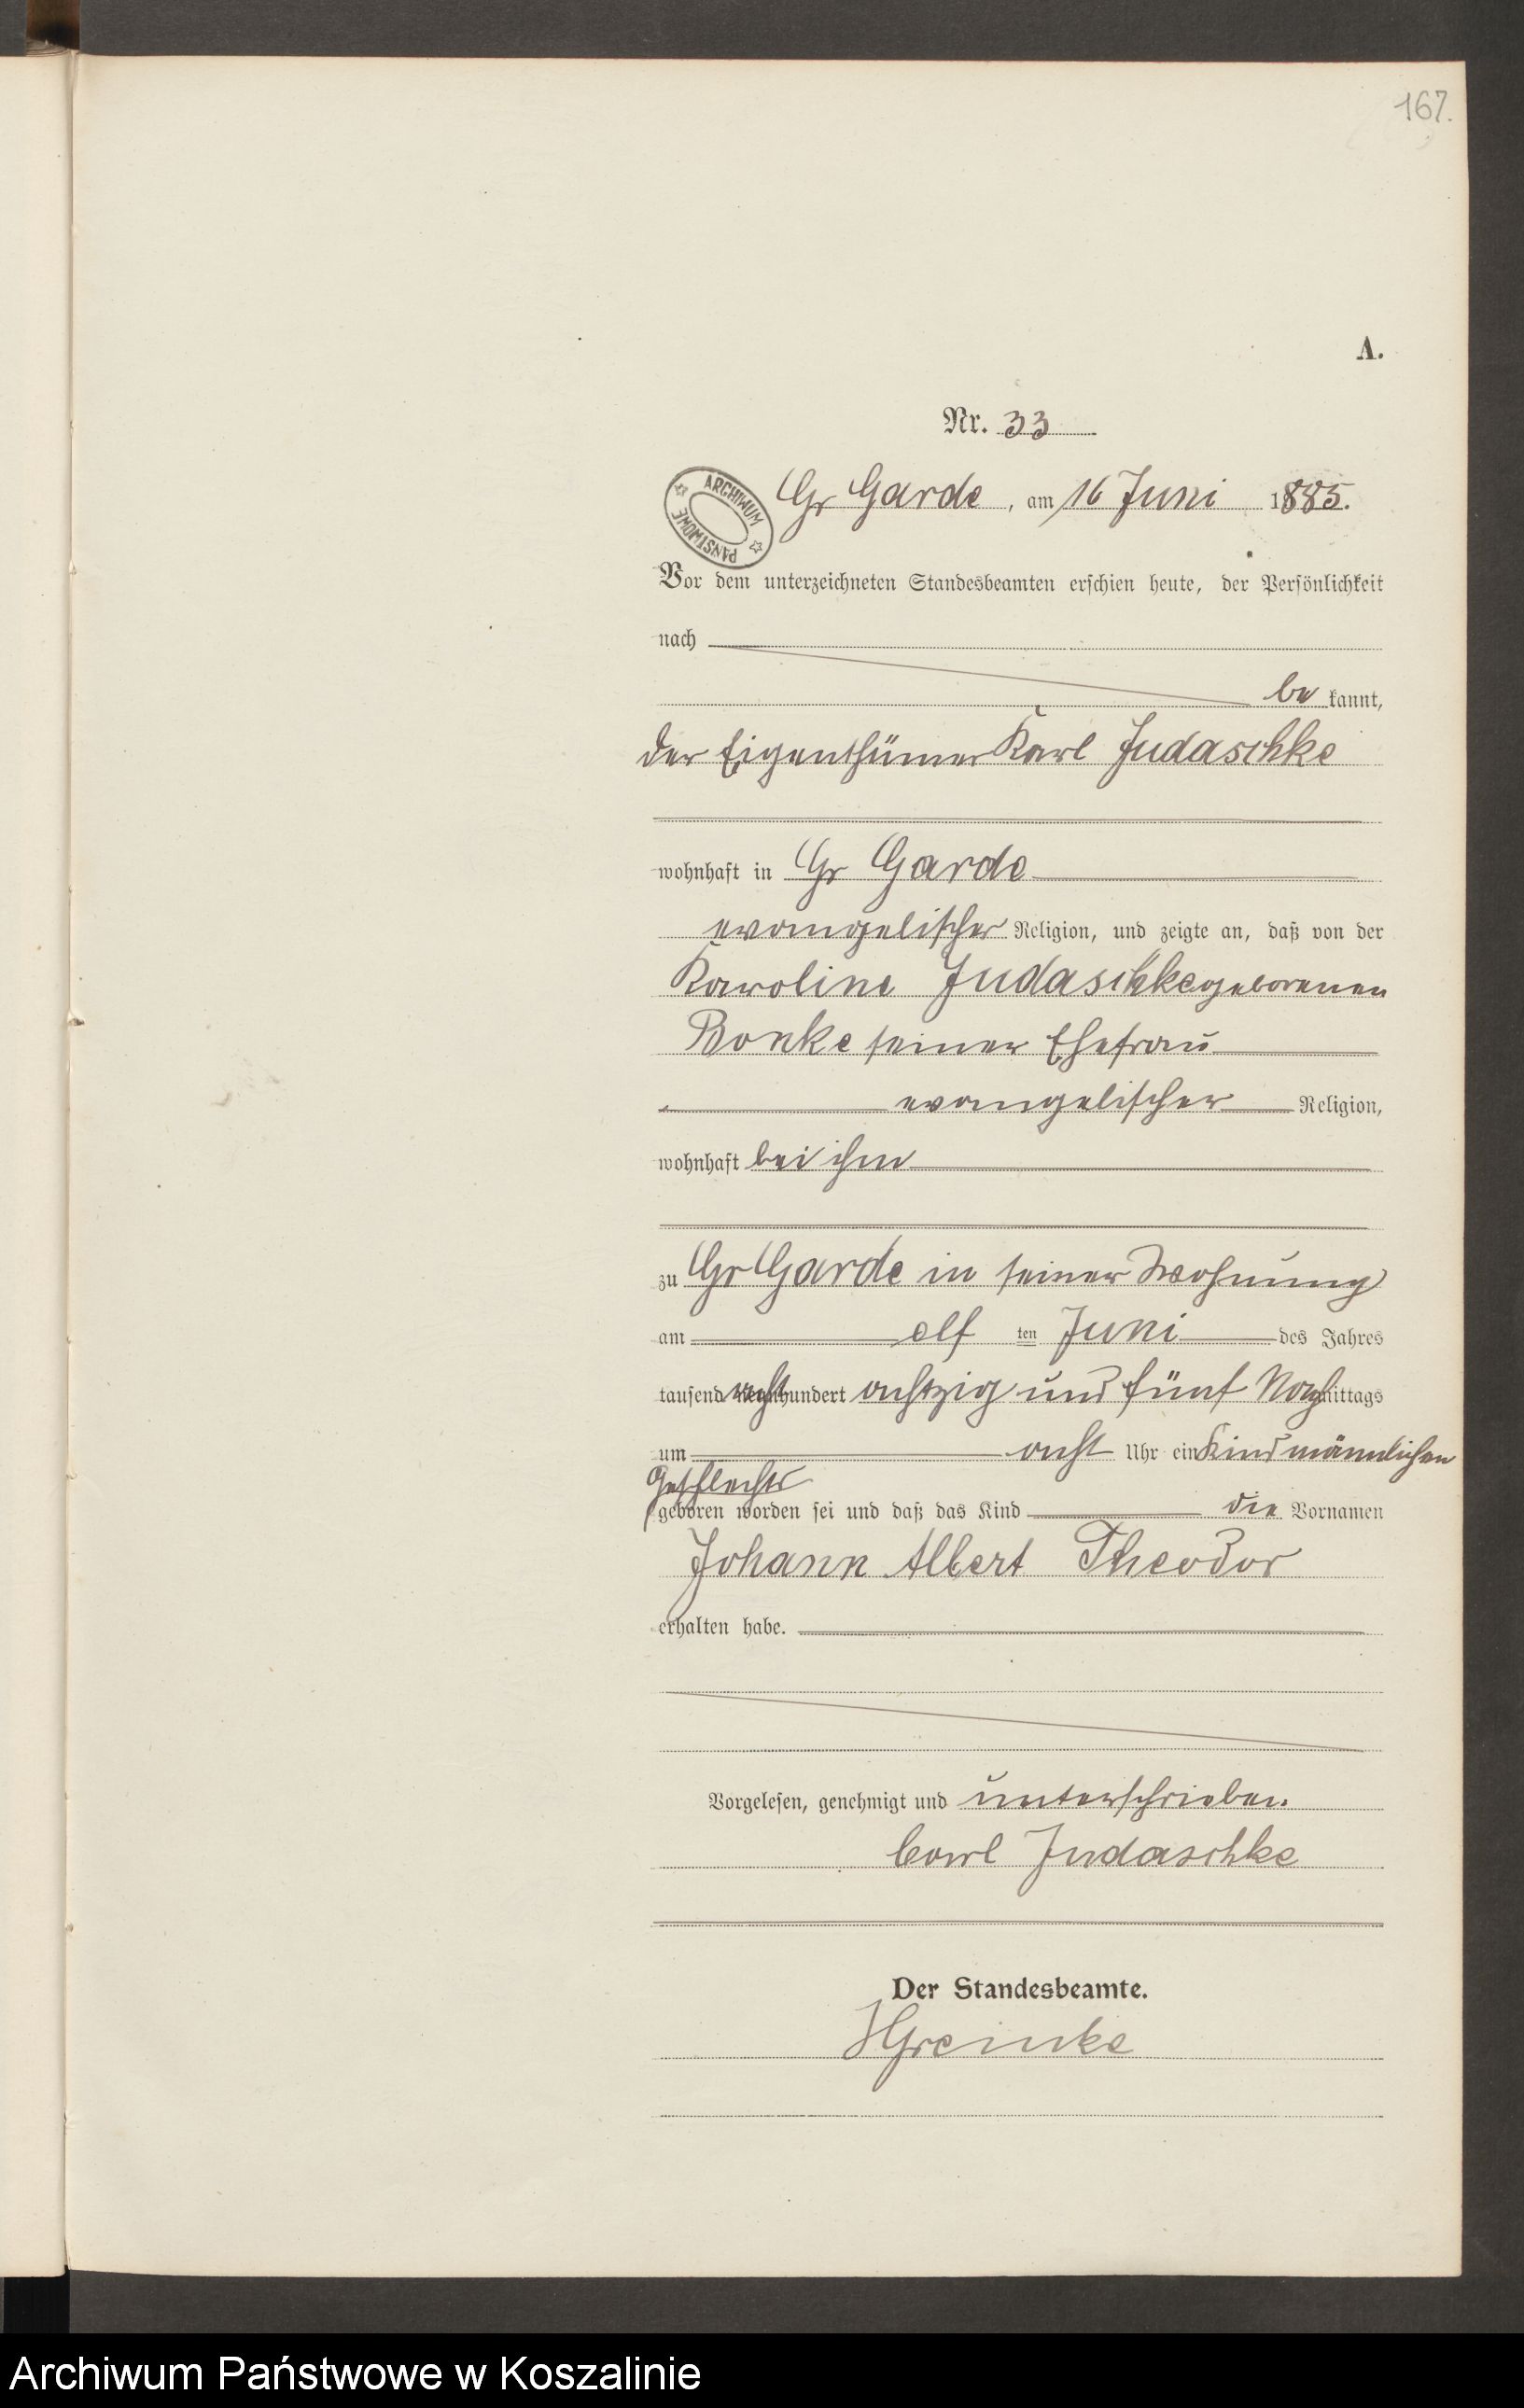 167.
A.
Nr. 33
ARCHIWUM PAŃSTWOWE
Gr Garde, am 16 Juni 1885.
Vor dem unterzeichneten Standesbeamten erschien heute, der Persönlichkeit
nach
be kannt,
der Eigenthümer Karl Judaschke
wohnhaft in Gr Garde
evangelischer Religion, und zeigte an, daß von der
Karoline Judaschke geborenen
Bonke seiner Ehefrau
evangelischer Religion,
wohnhaft bei ihm
zu Gr Garde in seiner Wohnung
am elf ten Juni des Jahres
tausend acht hundert achtzig und fünf Nachmittags
um acht Uhr ein Kind männlichen
Geschlechts
geboren worden sei und daß das Kind die Vornamen
Johann Albert Theodor
erhalten habe.
Vorgelesen, genehmigt und unterschrieben.
Carl Judaschke
Der Standesbeamte.
HGreinke
Archiwum Państwowe w Koszalinie